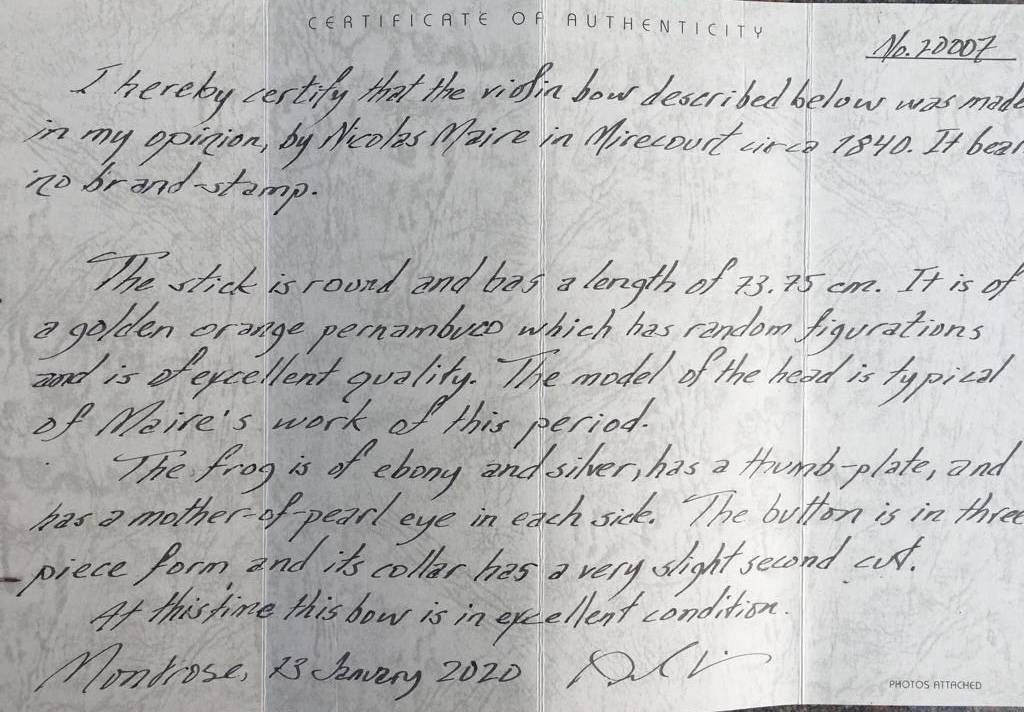 CERTIFICATE OF AUTHENTICITY
No. 20007
I hereby certify that the violin bow described below was made
in my opinion, by Nicolas Maire in Mirecourt circa 1840. It bear
no brand-stamp.
The stick is round and has a length of 73.75 cm. It is of
a golden orange pernambuco which has random figurations
and is of excellent quality. The model of the head is typical
of Maire's work of this period.
The frog is of ebony and silver, has a thumb-plate, and
has a mother-of-pearl eye in each side. The button is in three
piece form and its collar has a very slight second cut.
At this time this bow is in excellent condition.
Montrose, 13 January 2020
PHOTOS ATTACHED